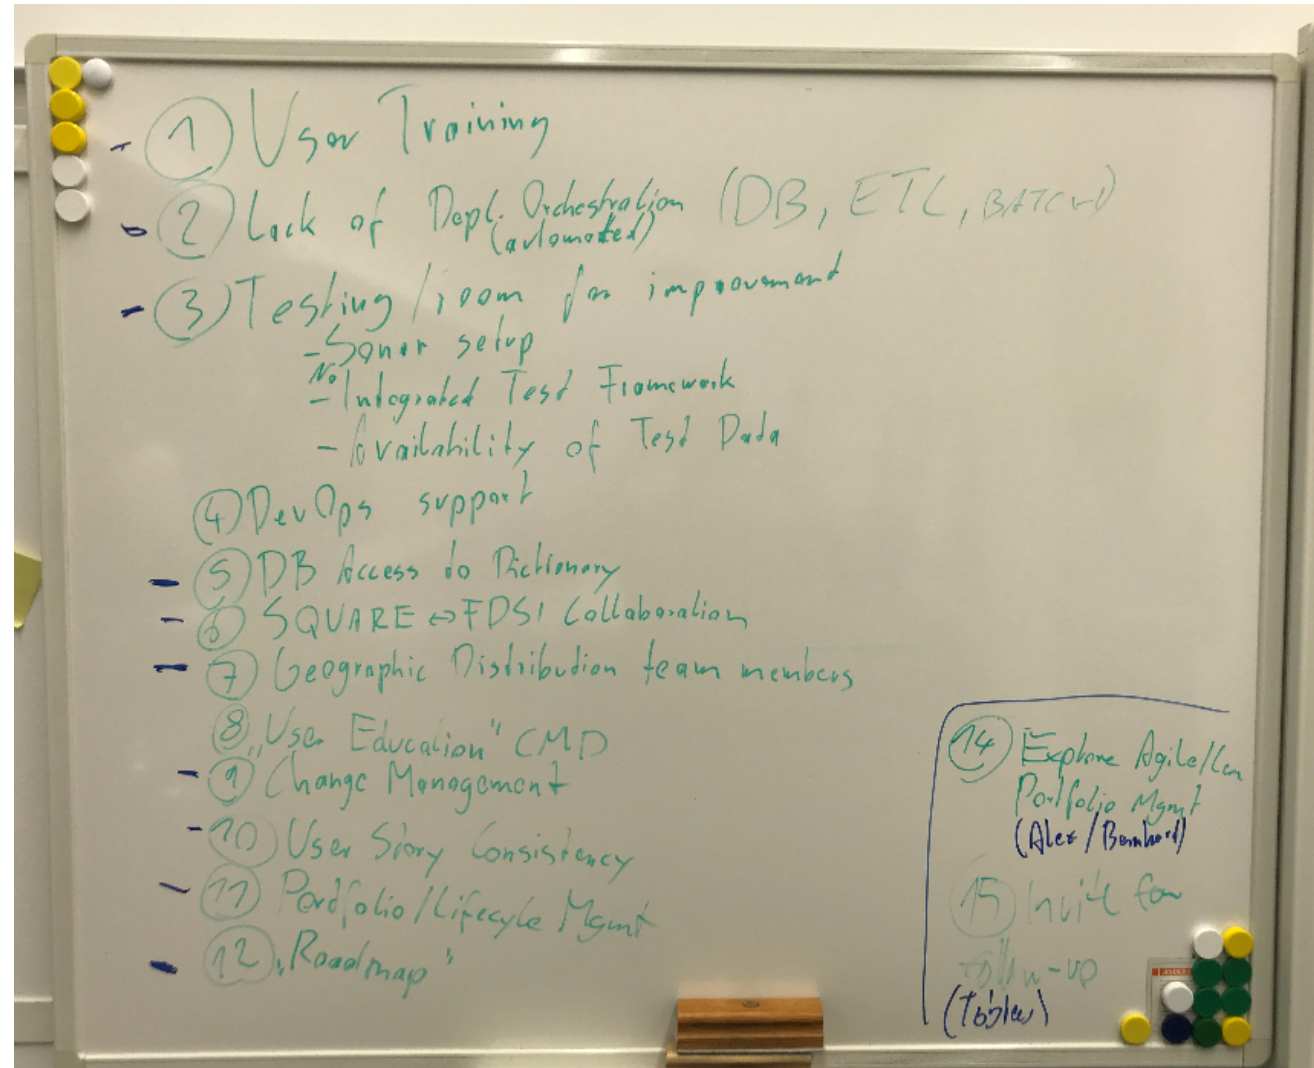 - ① User Training
- ② Lack of Depl. Orchestration (DB, ETL, BATCH)
(automated)
- ③ Testing / room for improvement
- Sonar setup
No
- Integrated Test Framework
- Availability of Test Data
④ DevOps support
- ⑤ DB Access to Dictionary
- ⑥ SQUARE ⇔ FDSI Collaboration
- ⑦ Geographic Distribution team members
⑧ „User Education" CMD
- ⑨ Change Management
- ⑩ User Story Consistency
- ⑪ Portfolio/Lifecyle Mgmt
- ⑫ „Roadmap"
⑭ Explore Agile/
Portfolio Mgmt
(Alex / Bernhard)
⑮ Invite for
follow-up